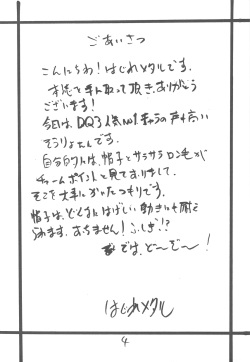 ごあいさつ
こんにちわ！はじめメタルです。
本誌を手に取って頂き、ありがとう
ございます！
今回は、DQ3人気No.1キャラの声も高い
そうりょたんです。
自分的には、帽子とサラサラロン毛が
チャームポイントと見ておりまして、
そこを大事にかいたつもりです。
帽子は、どんなにはげしい動きにも耐え
られます。おちません！ふしぎ!?
では、ど〜ぞ〜！
はじめメタル
4